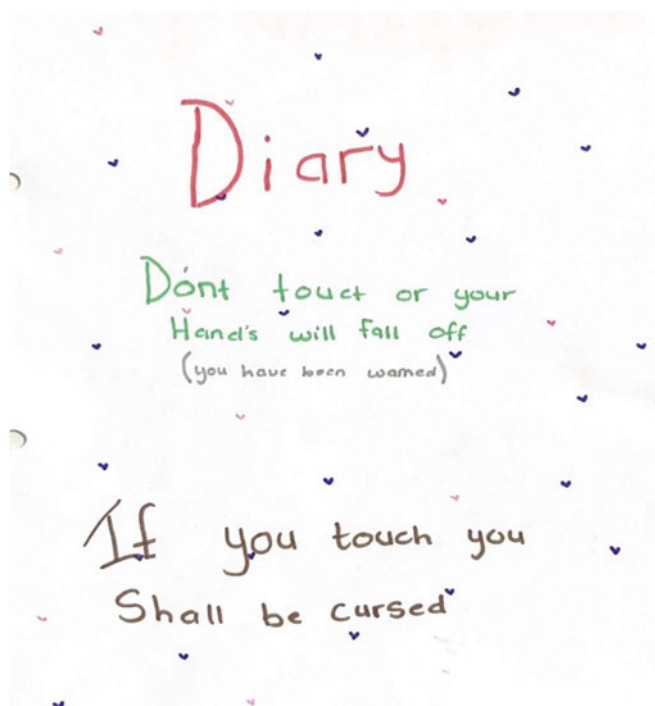 Diary
Dónt touct or your
Hand's will fall off
(you have been warned)
If you touch you
Shall be cursed